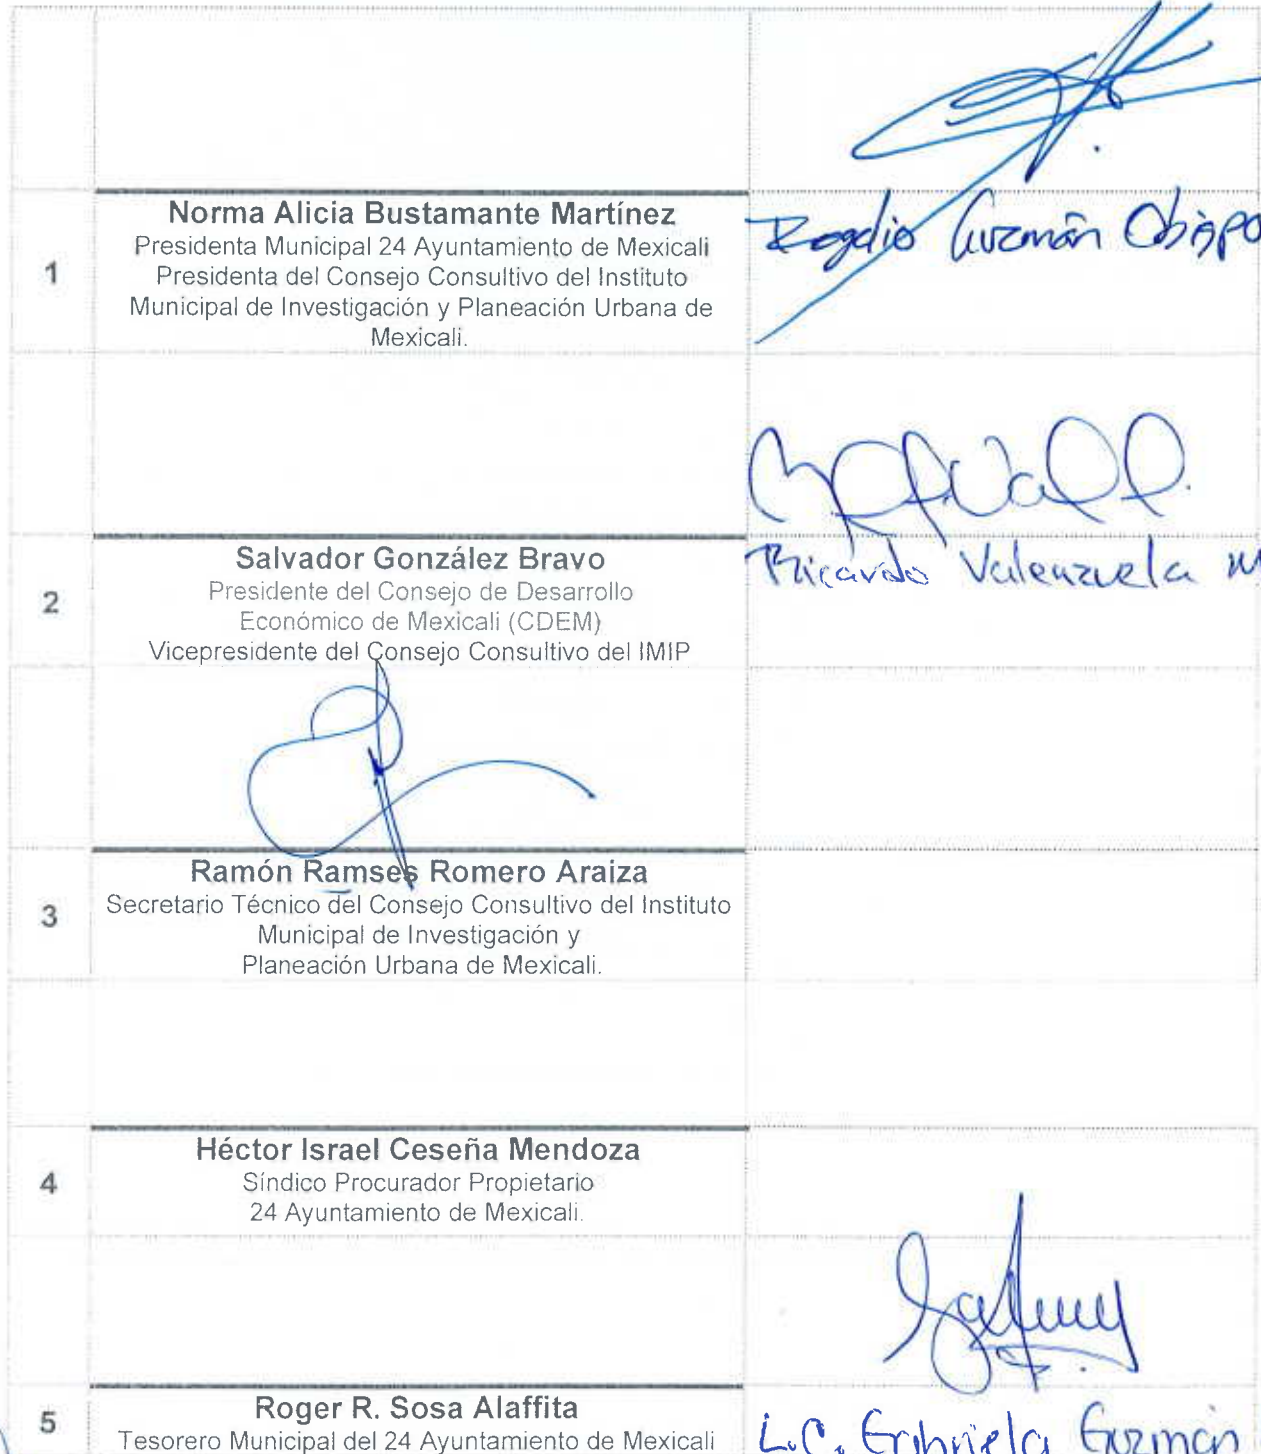 Norma Alicia Bustamante Martínez
1
Presidenta Municipal 24 Ayuntamiento de Mexicali
Presidenta del Consejo Consultivo del Instituto
Municipal de Investigación y Planeación Urbana de
Mexicali.
Rogelio Guzmán Obispo
Salvador González Bravo
2
Presidente del Consejo de Desarrollo
Económico de Mexicali (CDEM)
Vicepresidente del Consejo Consultivo del IMIP
Ricardo Valenzuela M
Ramón Ramses Romero Araiza
3
Secretario Técnico del Consejo Consultivo del Instituto
Municipal de Investigación y
Planeación Urbana de Mexicali.
Héctor Israel Ceseña Mendoza
4
Síndico Procurador Propietario
24 Ayuntamiento de Mexicali.
Roger R. Sosa Alaffita
5
Tesorero Municipal del 24 Ayuntamiento de Mexicali
L.C. Gabriela Guzmán